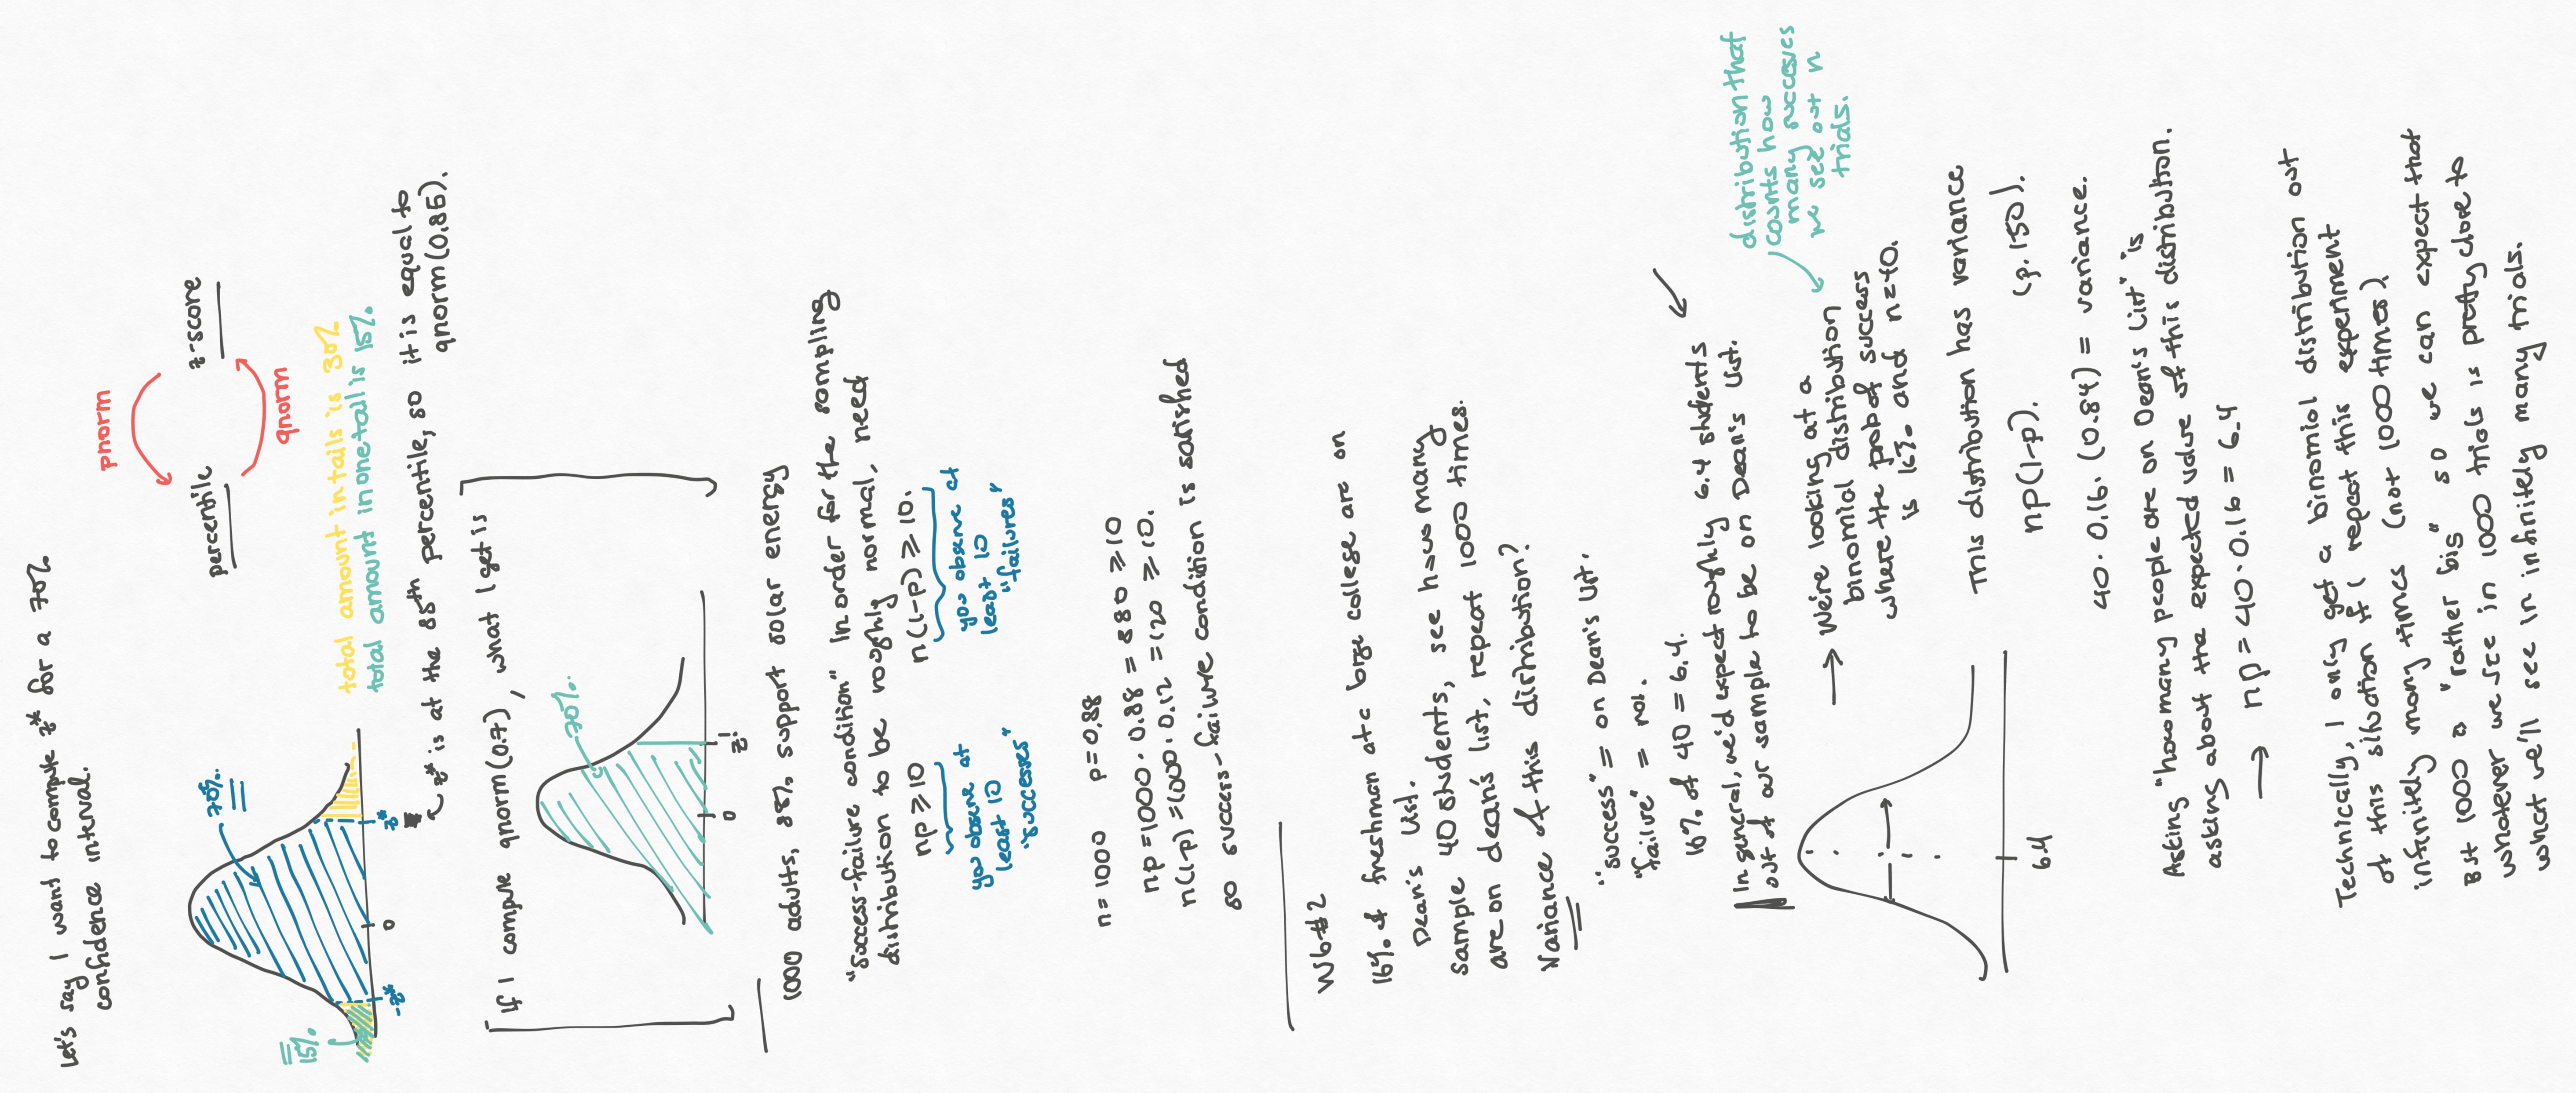 Let's say I want to compute z* for a 70%
confidence interval.
pnorm
percentile
z-score
qnorm
70%.
15%.
-z*
0
z*
total amount in tails is 30%
total amount in one tail is 15%.
z* is at the 85th percentile, so it is equal to
qnorm(0.85).
If I compute qnorm(0.7), what I get is
70%.
0
z!
1000 adults, 88% support solar energy
"success-failure condition" In order for the sampling
distribution to be roughly normal, need
np ≥ 10
n(1-p) ≥ 10.
you observe at
least 10
"successes"
you observe at
least 10
"failures"
n = 1000 p = 0.88
np = 1000 · 0.88 = 880 ≥ 10
n(1-p) = 1000 · 0.12 = 120 ≥ 10.
so success-failure condition is satisfied
W6#2
16% of freshman at a large college are on
Dean's List.
Sample 40 students, see how many
are on dean's list, repeat 1000 times.
Variance of this distribution?
"success" = on Dean's List.
"failure" = not.
16% of 40 = 6.4.
In general, we'd expect roughly 6.4 students
out of our sample to be on Dean's List.
distribution that
counts how
many successes
we see out n
trials.
→ We're looking at a
binomial distribution
where the prob of success
is 16% and n=40.
6.4
This distribution has variance
np(1-p). (p. 150).
40 · 0.16 · (0.84) = variance.
Asking "how many people are on Dean's List" is
asking about the expected value of this distribution.
→ np = 40 · 0.16 = 6.4
Technically, I only get a binomial distribution out
of this situation if I repeat this experiment
infinitely many times (not 1000 times)
But 1000 is "rather big" so we can expect that
whatever we see in 1000 trials is pretty close to
what we'll see in infinitely many trials.